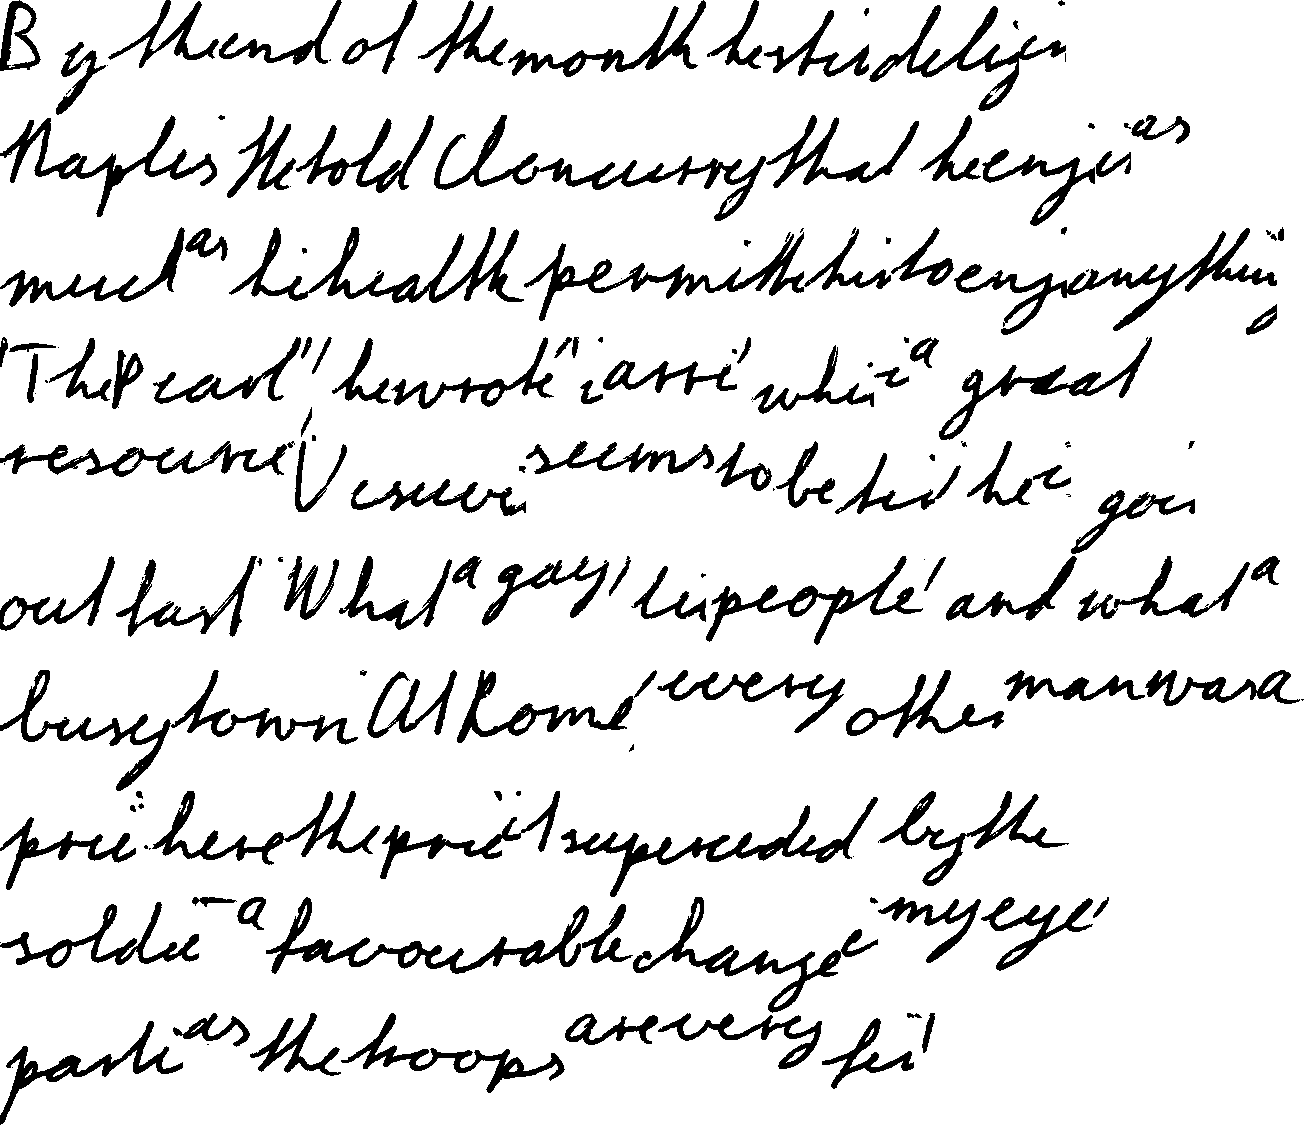 By the end of the month
Naples He told Cloncurry that he enjoys as
much as his health permitted him to enjoy anything
"The Pearl", he wrote, "is arrived, which is a great
resource. Vesuvius seems to be tired he is going
out fast What a gay, lively people, and what a
busy town At Rome, every other man was a
priest here the priest superceded by the
soldier - a favourable change in my eyes,
particularly as the troops are very fine